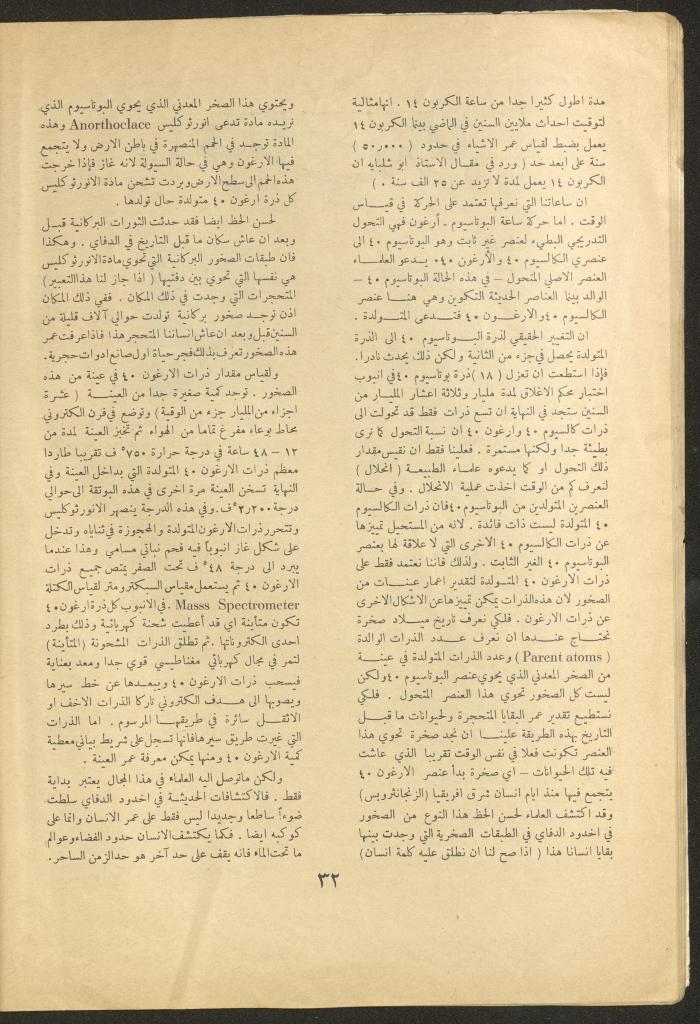 مدة اطول كثيرا جدا من ساعة الكربون ١٤ . انها مثالية
لتوقيت احداث ملايين السنين في الماضي بينما الكربون ١٤
يعمل بضبط لقياس عمر الاشياء في حدود ( ٥٠٫٠٠٠ )
سنة على ابعد حد ( ورد في مقال الاستاذ ابو شلبايه ان
الكربون ١٤ يعمل لمدة لا تزيد عن ٢٥ الف سنة . )
ان ساعاتنا التي نعرفها تعتمد على الحركة في قياس
الوقت . اما حركة ساعة البوتاسيوم ـ أرغون فهي التحول
التدريجي البطيء لعنصر غير ثابت وهو البوتاسيوم ٤٠ الى
عنصري الكالسيوم ٤٠ والأرغون ٤٠. يدعو العلماء
العنصر الاصلي المتحول – في هذه الحالة البوتاسيوم ٤٠ –
الوالد بينما العناصر الحديثة التكوين وهي هنا عنصر
الكالسيوم ٤٠ والارغون ٤٠ فتدعى المتولدة .
ان التغيير الحقيقي لذرة البوتاسيوم ٤٠ الى الذرة
المتولدة يحصل في جزء من الثانية ولكن ذلك يحدث نادرا .
فإذا استطعت ان تعزل ( ١٨ ) ذرة بوتاسيوم ٤٠ في انبوب
اختبار محكم الاغلاق لمدة مليار وثلاثة اعشار المليار من
السنين ستجد في النهاية ان تسع ذرات فقط قد تحولت الى
ذرات كالسيوم ٤٠ وارغون ٤٠ ان نسبة التحول كما نرى
بطيئة جدا ولكنها مستمرة . فعلينا فقط ان نقيس مقدار
ذلك التحول او كما يدعوه علماء الطبيعة ( انحلال )
لنعرف كم من الوقت اخذت عملية الانحلال . وفي حالة
العنصرين المتولدين من البوتاسيوم ٤٠ فان ذرات الكالسيوم
٤٠ المتولدة ليست ذات فائدة . لانه من المستحيل تمييزها
عن ذرات الكالسيوم ٤٠ الاخرى التي لا علاقة لها بعنصر
البوتاسيوم ٤٠ الغير الثابت . ولذلك فاننا نعتمد فقط على
ذرات الارغون ٤٠ المتولدة لتقدير اعمار عينات من
الصخور لان هذه الذرات يمكن تمييزها عن الاشكال الاخرى
عن ذرات الارغون . فلكي نعرف تاريخ ميلاد صخرة
نحتاج عندها ان نعرف عدد الذرات الوالدة
( Parent atoms ) وعدد الذرات المتولدة في عينة
من الصخر المعدني الذي يحوي عنصر البوتاسيوم ٤٠ ولكن
ليست كل الصخور تحوي هذا العنصر المتحول . فلكي
نستطيع تقدير عمر البقايا المتحجرة ولحيوانات ما قبل
التاريخ بهذه الطريقة علينا ان نجد صخرة تحوي هذا
العنصر تكونت فعلا في نفس الوقت تقريبا الذي عاشت
فيه تلك الحيوانات – اي صخرة بدأ عنصر الارغون ٤٠
يتجمع فيها منذ ايام انسان شرق افريقيا ( الزنجانثروبس )
وقد اكتشف العلماء لحسن الحظ هذا النوع من الصخور
في اخدود الدفاي في الطبقات الصخرية التي وجدت بينها
بقايا انسانا هذا ( اذا صح لنا ان نطلق عليه كلمة انسان )
ويحتوي هذا الصخر المعدني الذي يحوي البوتاسيوم الذي
نريده مادة تدعى انورثوكليس Anorthoclace وهذه
المادة توجد في الحمم المنصهرة في باطن الارض ولا يتجمع
فيها الارغون وهي في حالة السيولة لانه غاز فإذا خرجت
هذه الحمم الى سطح الارض وبردت تشحن مادة الانورثوكليس
كل ذرة ارغون ٤٠ متولدة حال تولدها .
لحسن الحظ ايضا فقد حدثت الثورات البركانية قبل
وبعد ان عاش سكان ما قبل التاريخ في الدفاي . وهكذا
فان طبقات الصخور البركانية التي تحوي مادة الانورثوكليس
هي نفسها التي تحوي بين دفتيها ( اذا جاز لنا هذا التعبير )
المتحجرات التي وجدت في ذلك المكان . ففي ذلك المكان
اذن توجد صخور بركانية تولدت حوالي آلاف قليلة من
السنين قبل وبعد ان عاش انساننا المتحجر هذا فاذا عرفت عمر
هذه الصخور تعرف بذلك فجر حياة اول صانع ادوات حجرية .
ولقياس مقدار ذرات الارغون ٤٠ في عينة من هذه
الصخور . توجد كمية صغيرة جدا من العينة ( عشرة
اجزاء من المليار جزء من الوقية ) وتوضع في فرن الكتروني
محاط بوعاء مفرغ تماما من الهواء ثم تخبز العينة لمدة من
١٢ – ٤٨ ساعة في درجة حرارة ٧٥٠° ف تقريبا طاردا
معظم ذرات الارغون ٤٠ المتولدة التي بداخل العينة وفي
النهاية تسخن العينة مرة اخرى في هذه البوتقة الى حوالي
درجة ٢٫٢٠٠° ف . وفي هذه الدرجة ينصهر الانورثوكليس
وتتحرر ذرات الارغون المتولدة والمحجوزة في ثناياه وتدخل
على شكل غاز انبوباً فيه فحم نباتي مسامي وهذا عندما
يبرد الى درجة ٤٨° ف تحت الصفر يمتص جميع ذرات
الارغون ٤٠ ثم يستعمل مقياس السبكترومتر لقياس الكتلة
Masss Spectrometer . في الانبوب كل ذرة ارغون ٤٠
تكون متأينة اي قد أعطيت شحنة كهربائية وذلك بطرد
احدى الكتروناتها . ثم تطلق الذرات المشحونة ( المتأينة )
لتمر في مجال كهربائي مغناطيسي قوي جدا ومعد بعناية
فيسحب ذرات الارغون ٤٠ ويبعدها عن خط سيرها
ويصوبها الى هدف الكتروني تاركا الذرات الاخف او
الاثقل سائرة في طريقها المرسوم . اما الذرات
التي غيرت طريق سيرها فانها تسجل على شريط بياني معطية
كمية الارغون ٤٠ ومنها يمكن معرفة عمر العينة .
ولكن ما توصل اليه العلماء في هذا المجال يعتبر بداية
فقط . فالاكتشافات الحديثة في اخدود الدفاي سلطت
ضوءاً ساطعا وجديدا ليس فقط على عمر الانسان وانما على
كوكبه ايضا . فكما يكتشف الانسان حدود الفضاء وعوالم
ما تحت الماء فانه يقف على حد آخر هو حد الزمن الساحر .
٣٢